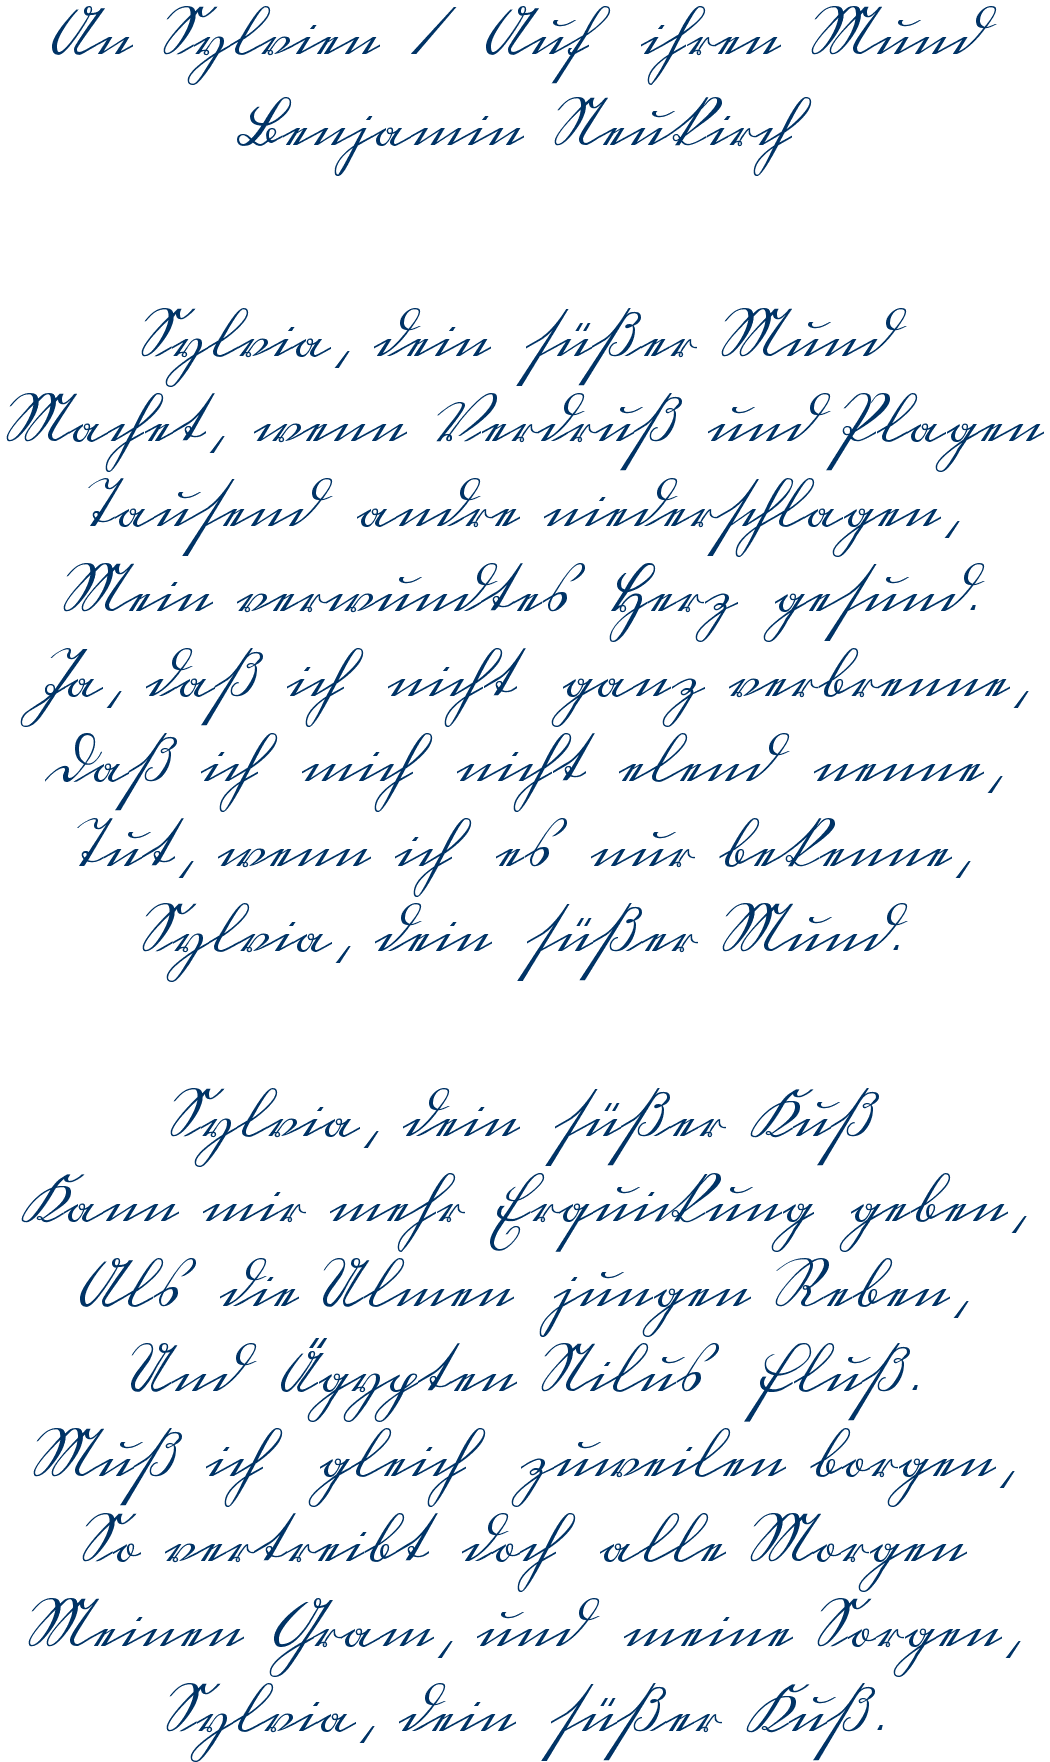 An Sylvien / Auf ihren Mund
Benjamin Neukirch
Sylvia, dein süßer Mund
Machet, wenn Verdruß und Plagen
Tausend andre niederschlagen,
Mein verwundtes Herz gesund.
Ja, daß ich nicht ganz verbrenne,
Daß ich mich nicht elend nenne,
Tut, wenn ich es nur bekenne,
Sylvia, dein süßer Mund.
Sylvia, dein süßer Kuß
Kann mir mehr Erquickung geben,
Als die Ulmen jungen Reben,
Und Ägypten Nilus Fluß.
Muß ich gleich zuweilen borgen,
So vertreibt doch alle Morgen
Meinen Gram, und meine Sorgen,
Sylvia, dein süßer Kuß.